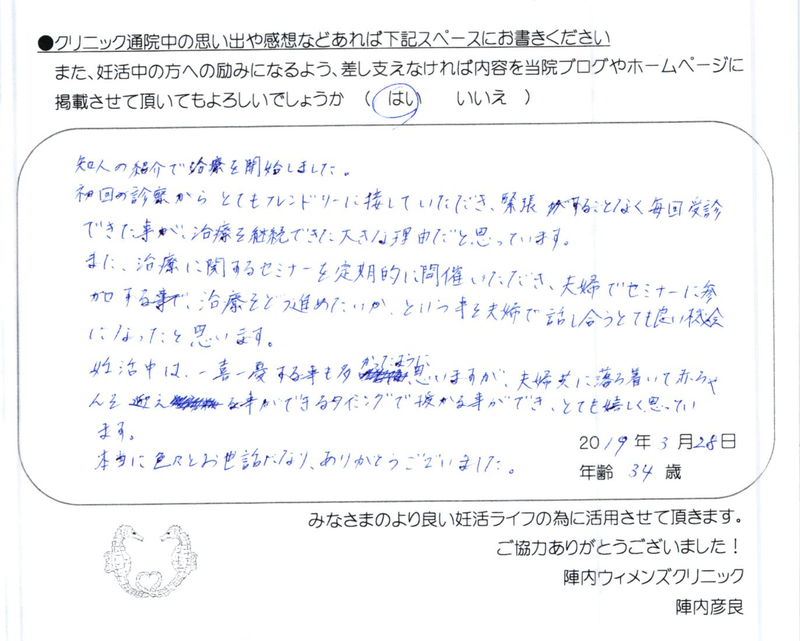 ●クリニック通院中の思い出や感想などあれば下記スペースにお書きください
また、妊活中の方への励みになるよう、差し支えなければ内容を当院ブログやホームページに
掲載させて頂いてもよろしいでしょうか （ はい　いいえ ）
知人の紹介で治療を開始しました。
初回の診察からとてもフレンドリーに接していただき、緊張がすることなく毎回受診
できた事が、治療を継続できた大きな理由だと思っています。
また、治療に関するセミナーを定期的に開催いただき、夫婦でセミナーに参
加する事で、治療をどう進めたいか、という事を夫婦で話し合うとても良い機会
になったと思います。
妊活中は、一喜一憂する事も多かったように思いますが、夫婦共に落ち着いて赤ちゃ
んを迎える事ができるタイミングで授かる事ができ、とても嬉しく思ってい
ます。
本当に色々とお世話になり、ありがとうございました。
2019年3月28日
年齢 34 歳
みなさまのより良い妊活ライフの為に活用させて頂きます。
ご協力ありがとうございました！
陣内ウィメンズクリニック
陣内彦良